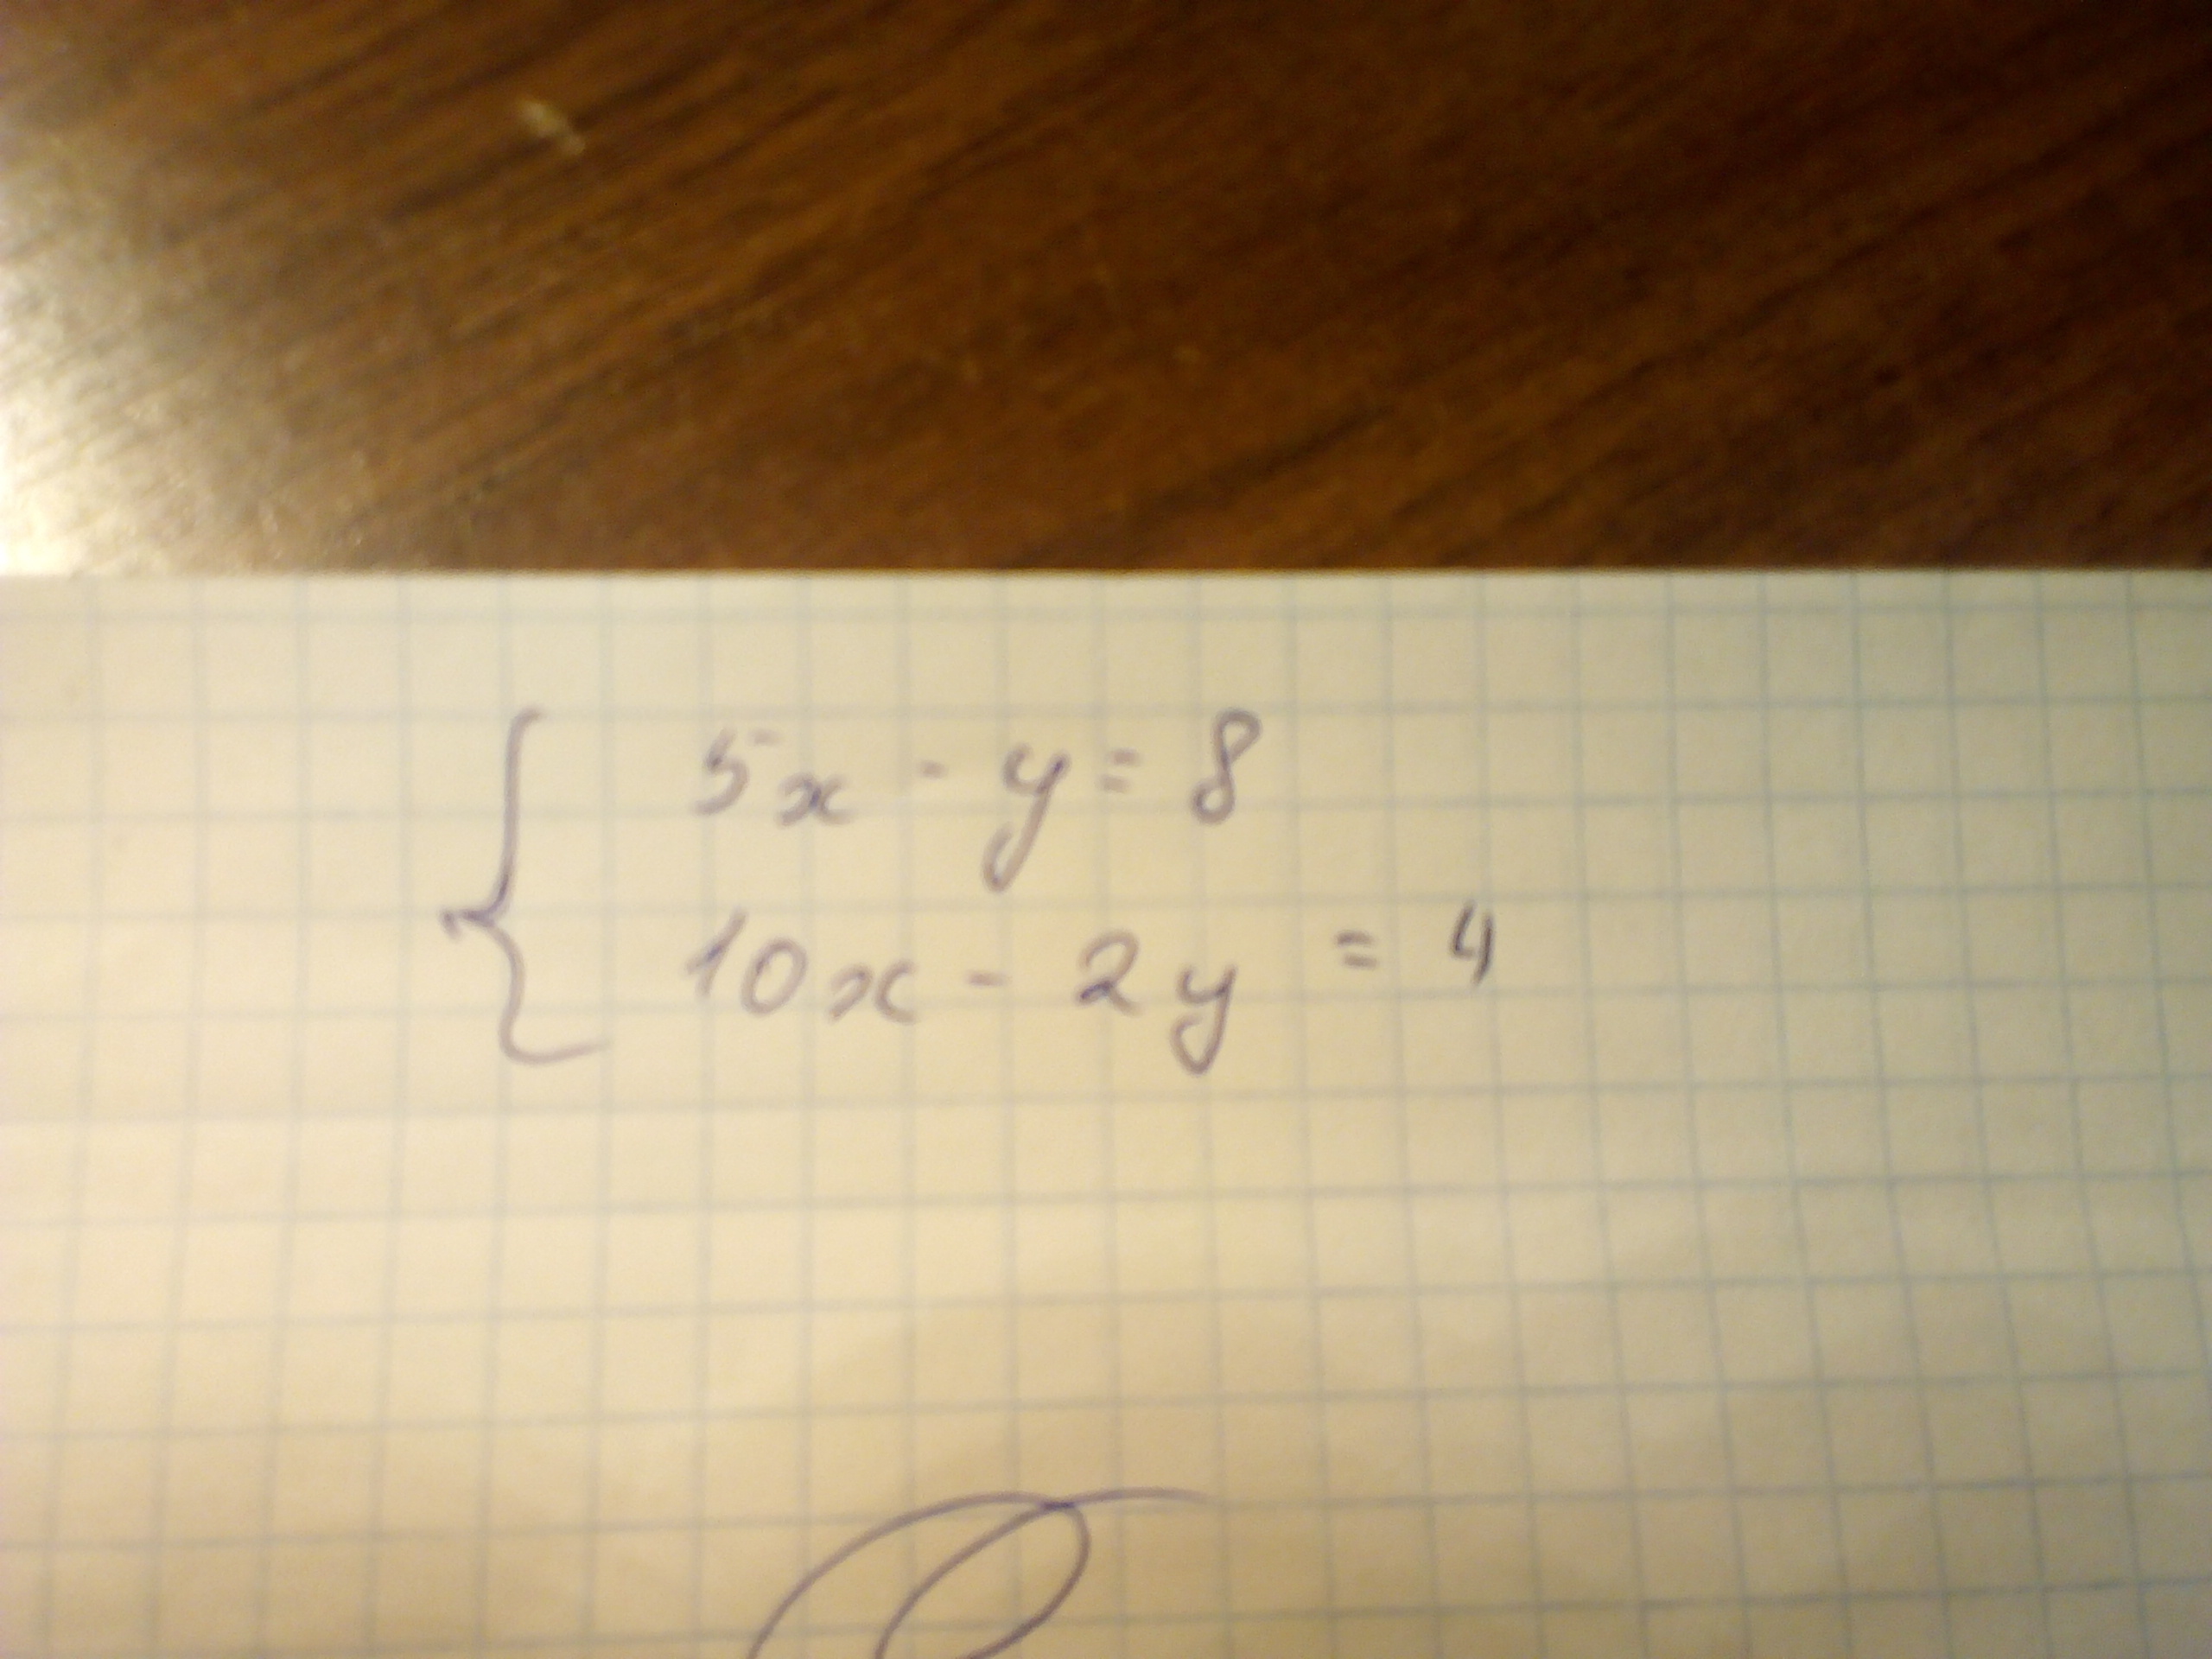 5x - y = 8
10x - 2y = 4